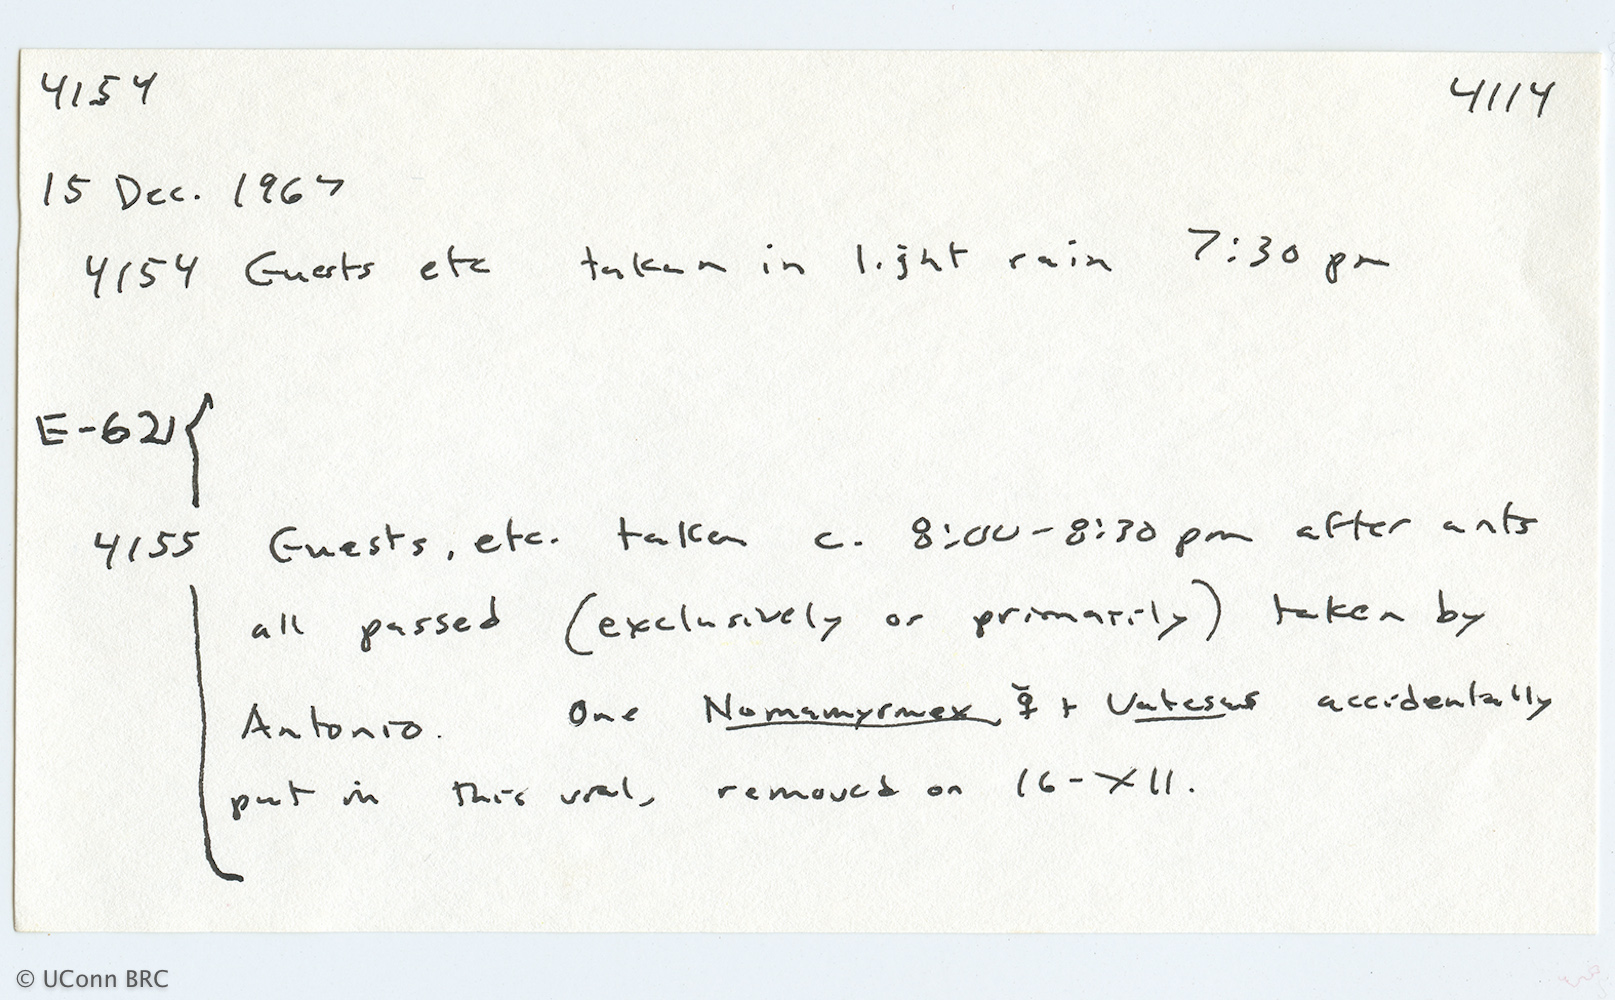 4154 4114
15 Dec. 1967
4154 Guests etc taken in light rain 7:30 pm
E-621
4155 Guests, etc. taken c. 8:00-8:30 pm after ants
all passed (exclusively or primarily) taken by
Antonio. One Nomamyrmex ☿ + Vatesus accidentally
put in this vial, removed on 16-XII.
© UConn BRC